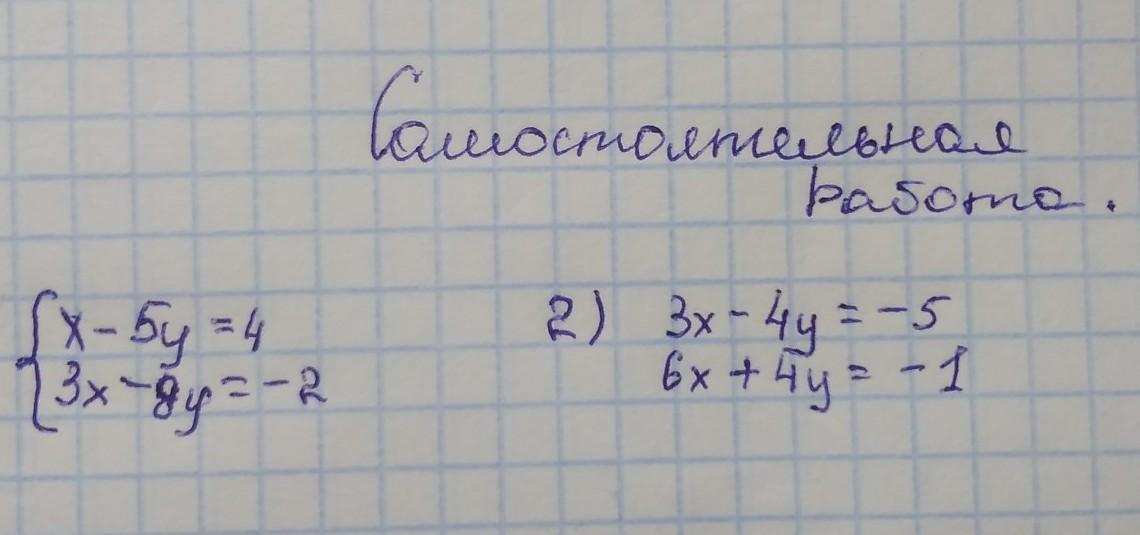 Самостоятельная
работа.
{ x - 5y = 4
3x - 8y = -2
2) 3x - 4y = -5
6x + 4y = -1